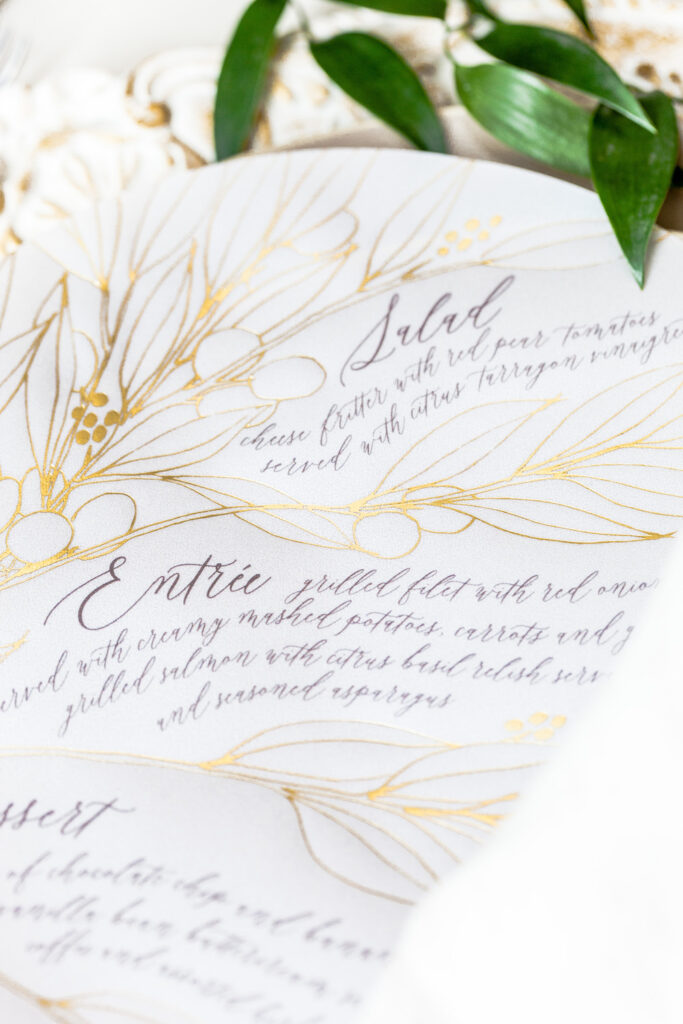 Salad
cheese fritter with red pear tomatoes
served with citrus tarragon vinaigre
Entrée grilled filet with red onio
erved with creamy mashed potatoes, carrots and g
grilled salmon with citrus basil relish serv
and seasoned asparagus
ssert
of chocolate chip and banan
vanilla bean buttercream,
coffee and assorted